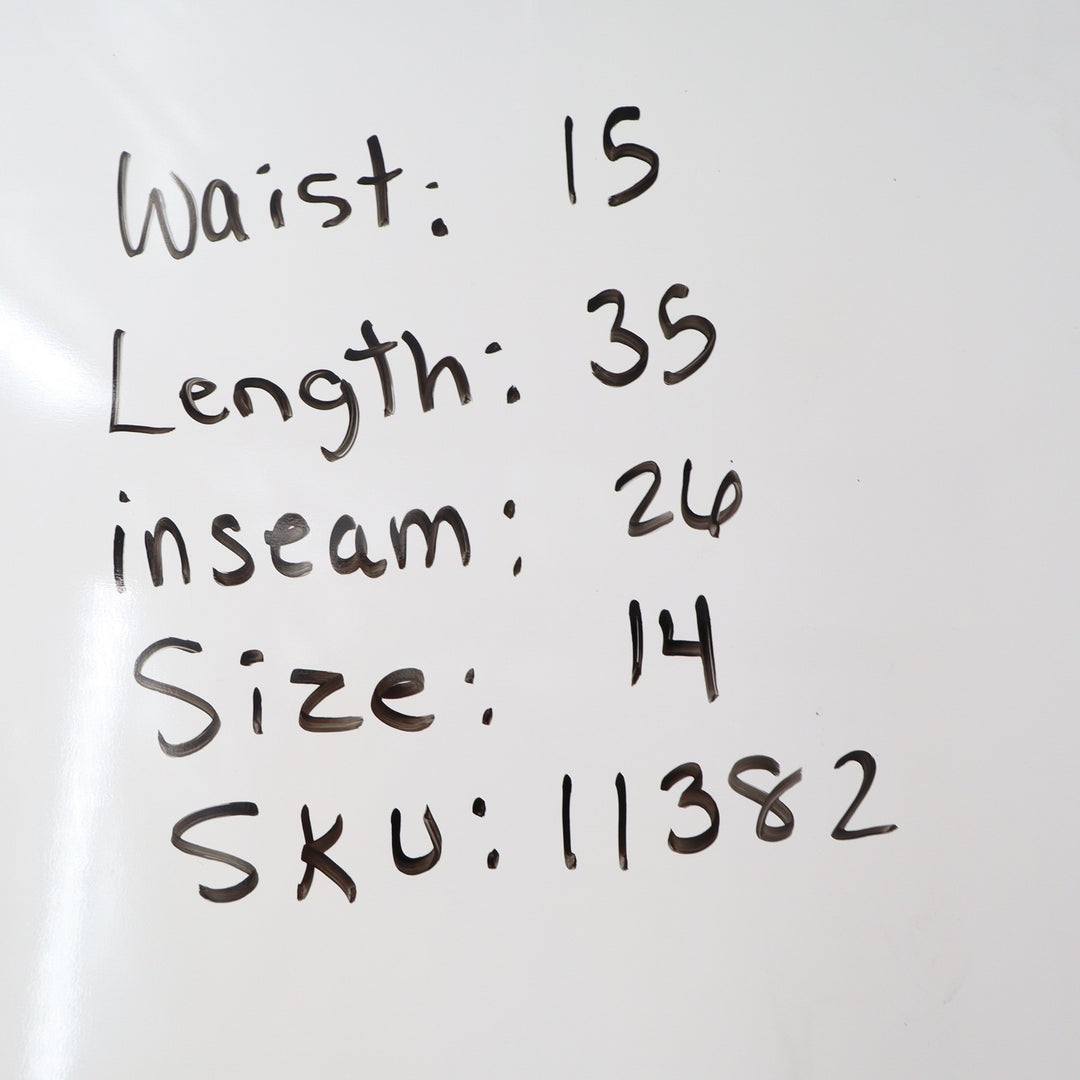 Waist: 15
Length: 35
inseam: 26
Size: 14
SKU: 11382